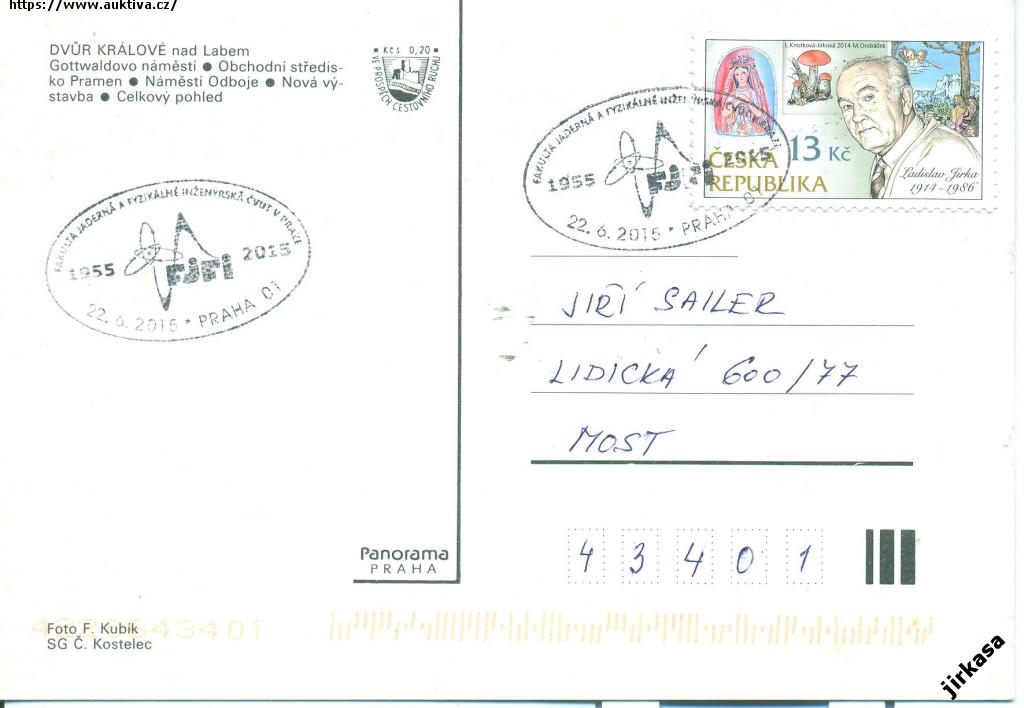 https://www.auktiva.cz/
DVŮR KRÁLOVÉ nad Labem
Gottwaldovo náměstí ● Obchodní středis-
ko Pramen ● Náměstí Odboje ● Nová vý-
stavba ● Celkový pohled
Kčs 0,20
VE PROSPĚCH CESTOVNÍHO RUCHU
L.Knotková-Jirková 2014-M.Ondráček
13 Kč
ČESKÁ
REPUBLIKA
Ladislav Jirka
1914-1986
FAKULTA JADERNÁ A FYZIKÁLNĚ INŽENÝRSKÁ ČVUT V PRAZE
1955 FJFI 2015
22. 6. 2015 * PRAHA 01
FAKULTA JADERNÁ A FYZIKÁLNĚ INŽENÝRSKÁ ČVUT V PRAZE
1955 FJFI 2015
22. 6. 2015 * PRAHA 01
JIŘÍ SAILER
LIDICKÁ 600/77
MOST
43401
Panorama
PRAHA
Foto F. Kubík
SG Č. Kostelec
jirkasa